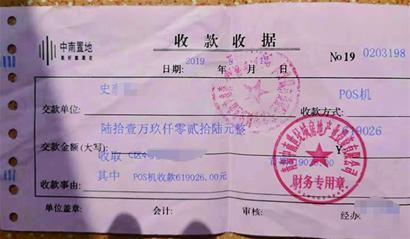 中南置地
美好就现在
收款收据
No 19 0203198
日期: 2019
史 POS机
交款单位: 收款方式:
陆拾壹万玖仟零贰拾陆元整 619026
交款金额(大写): ¥
收取
其中 POS机收款619026.00元
收款事由:
财务专用章
单位盖章: 会计: 审核: 经办